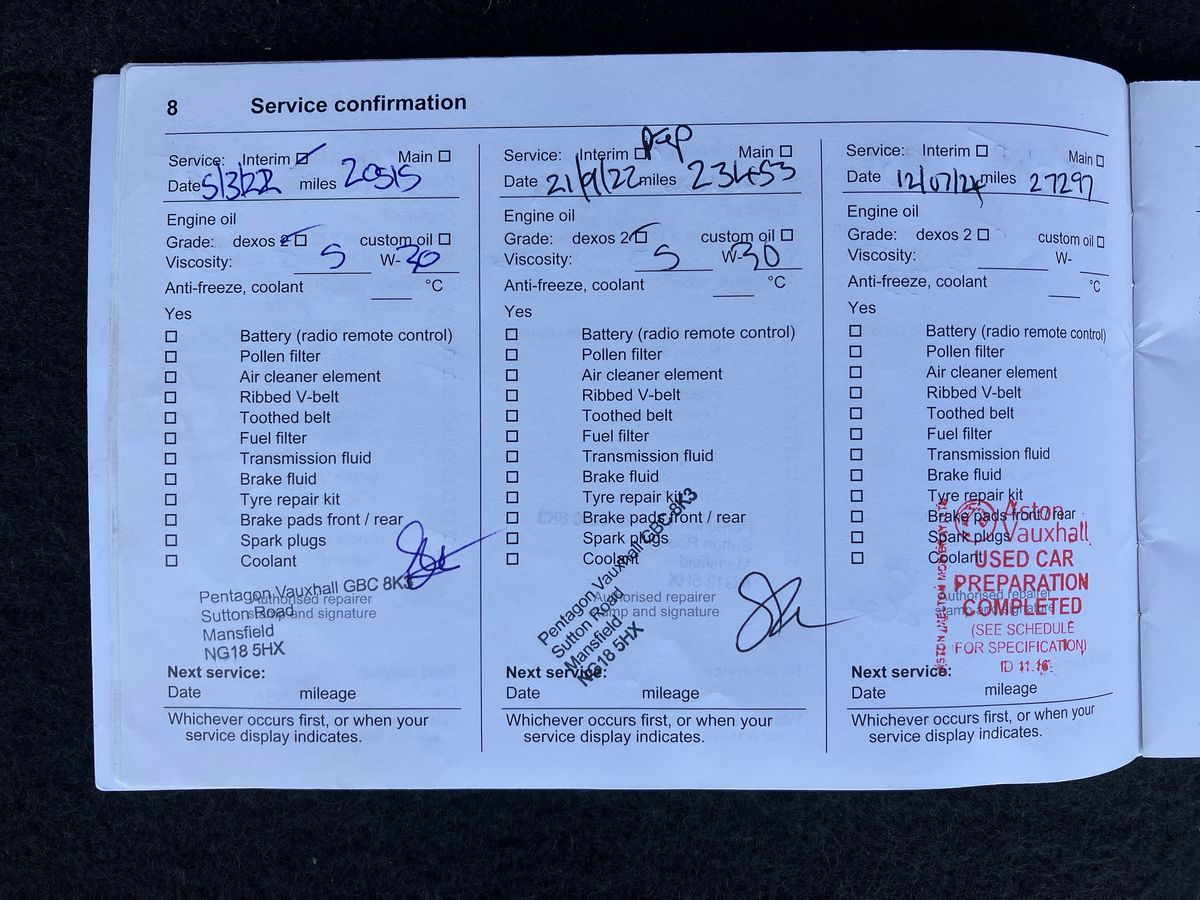 8 Service confirmation
Service: Interim Main
Date 5/3/22 miles 20515
Engine oil
Grade: dexos 2 custom oil
Viscosity: 5 W-30
Anti-freeze, coolant °C
Yes
Battery (radio remote control)
Pollen filter
Air cleaner element
Ribbed V-belt
Toothed belt
Fuel filter
Transmission fluid
Brake fluid
Tyre repair kit
Brake pads front / rear
Spark plugs
Coolant
Pentagon Vauxhall GBC 8K3
Authorised repairer
Sutton Road
stamp and signature
Mansfield
NG18 5HX
Next service:
Date mileage
Whichever occurs first, or when your
service display indicates.
Service: Interim Main
Date 21/9/22 miles 23453
Engine oil
Grade: dexos 2 custom oil
Viscosity: 5 W-30
Anti-freeze, coolant °C
Yes
Battery (radio remote control)
Pollen filter
Air cleaner element
Ribbed V-belt
Toothed belt
Fuel filter
Transmission fluid
Brake fluid
Tyre repair kit
Brake pads front / rear
Spark plugs
Coolant
Pentagon Vauxhall GBC 8K3
Sutton Road
Mansfield
NG18 5HX
Authorised repairer
stamp and signature
Next service:
Date mileage
Whichever occurs first, or when your
service display indicates.
Service: Interim Main
Date 12/07/24 miles 27297
Engine oil
Grade: dexos 2 custom oil
Viscosity: W-
Anti-freeze, coolant °C
Yes
Battery (radio remote control)
Pollen filter
Air cleaner element
Ribbed V-belt
Toothed belt
Fuel filter
Transmission fluid
Brake fluid
Tyre repair kit
Brake pads front / rear
Spark plugs
Coolant
Aston
Vauxhall
USED CAR
PREPARATION
COMPLETED
(SEE SCHEDULE
FOR SPECIFICATION)
ID 11.16
Authorised repairer
stamp and signature
Next service:
Date mileage
Whichever occurs first, or when your
service display indicates.